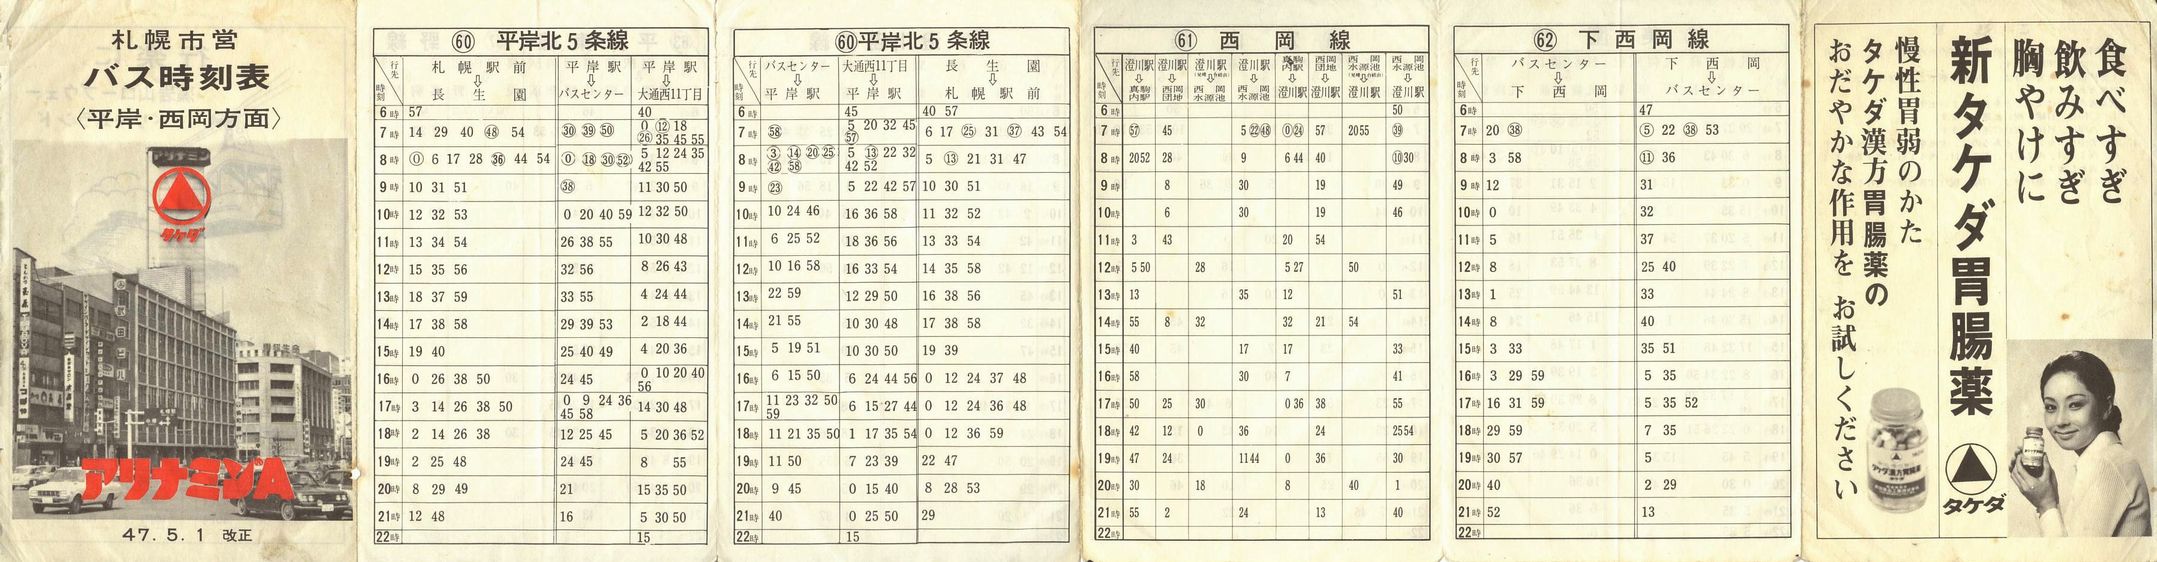 札幌市営
バス時刻表
〈平岸・西岡方面〉
アリナミン
タケダ
アリナミンA
47. 5. 1 改正
⑥⓪ 平岸北5条線
行先 時刻 札幌駅前⇩長生園 平岸駅⇩バスセンター 平岸駅⇩大通西11丁目
6時 57 40
7時 14 29 40 ㊽ 54 ㉚ ㊴ ㊿ 0 ⑫ 18 ㉖ 35 45 55
8時 ⓪ 6 17 28 ㊱ 44 54 ⓪ ⑱ ㉚ (52) 5 12 24 35 42 55
9時 10 31 51 ㊳ 11 30 50
10時 12 32 53 0 20 40 59 12 32 50
11時 13 34 54 26 38 55 10 30 48
12時 15 35 56 32 56 8 26 43
13時 18 37 59 33 55 4 24 44
14時 17 38 58 29 39 53 2 18 44
15時 19 40 25 40 49 4 20 36
16時 0 26 38 50 24 45 0 10 20 40 56
17時 3 14 26 38 50 0 9 24 36 45 58 14 30 48
18時 2 14 26 38 12 25 45 5 20 36 52
19時 2 25 48 24 45 8 55
20時 8 29 49 21 15 35 50
21時 12 48 16 5 30 50
22時 15
⑥⓪ 平岸北5条線
行先 時刻 バスセンター⇩平岸駅 大通西11丁目⇩平岸駅 長生園⇩札幌駅前
6時 45 40 57
7時 (58) 5 20 32 45 (57) 6 17 ㉕ 31 ㊲ 43 54
8時 ③ ⑭ ⑳ ㉕ ㊷ (58) 5 ⑬ 22 32 42 52 5 ⑬ 21 31 47
9時 ㉓ 5 22 42 57 10 30 51
10時 10 24 46 16 36 58 11 32 52
11時 6 25 52 18 36 56 13 33 54
12時 10 16 58 16 33 54 14 35 58
13時 22 59 12 29 50 16 38 56
14時 21 55 10 30 48 17 38 58
15時 5 19 51 10 30 50 19 39
16時 6 15 50 6 24 44 56 0 12 24 37 48
17時 11 23 32 50 59 6 15 27 44 0 12 24 36 48
18時 11 21 35 50 1 17 35 54 0 12 36 59
19時 11 50 7 23 39 22 47
20時 9 45 0 15 40 8 28 53
21時 40 0 25 50 29
22時 15
⑥① 西岡線
行先 時刻 澄川駅⇩真駒内駅 澄川駅⇩西岡団地 澄川駅⇩西岡水源池 澄川駅⇩西岡水源池 真駒内駅⇩澄川駅 西岡団地⇩澄川駅 西岡水源池⇩澄川駅 西岡水源池⇩澄川駅
6時 50
7時 (57) 45 5 ㉒ ㊽ ⓪ ㉔ 57 20 55 ㊴
8時 20 52 28 9 6 44 40 ⑩ 30
9時 8 30 19 49
10時 6 30 19 46
11時 3 43 20 54
12時 5 50 28 5 27 50
13時 13 35 12 51
14時 55 8 32 32 21 54
15時 40 17 17 33
16時 58 30 7 41
17時 50 25 30 0 36 38 55
18時 42 12 0 36 24 25 54
19時 47 24 11 44 0 36 30
20時 30 18 8 40 1
21時 55 2 24 13 40
22時
⑥② 下西岡線
行先 時刻 バスセンター⇩下西岡 下西岡⇩バスセンター
6時 47
7時 20 ㊳ ⑤ 22 ㊳ 53
8時 3 58 ⑪ 36
9時 12 31
10時 0 32
11時 5 37
12時 8 25 40
13時 1 33
14時 8 40
15時 3 33 35 51
16時 3 29 59 5 35
17時 16 31 59 5 35 52
18時 29 59 7 35
19時 30 57 5
20時 40 2 29
21時 52 13
22時
食べすぎ
飲みすぎ
胸やけに
新タケダ胃腸薬
タケダ
慢性胃弱のかた
タケダ漢方胃腸薬の
おだやかな作用を お試しください
タケダ漢方胃腸薬